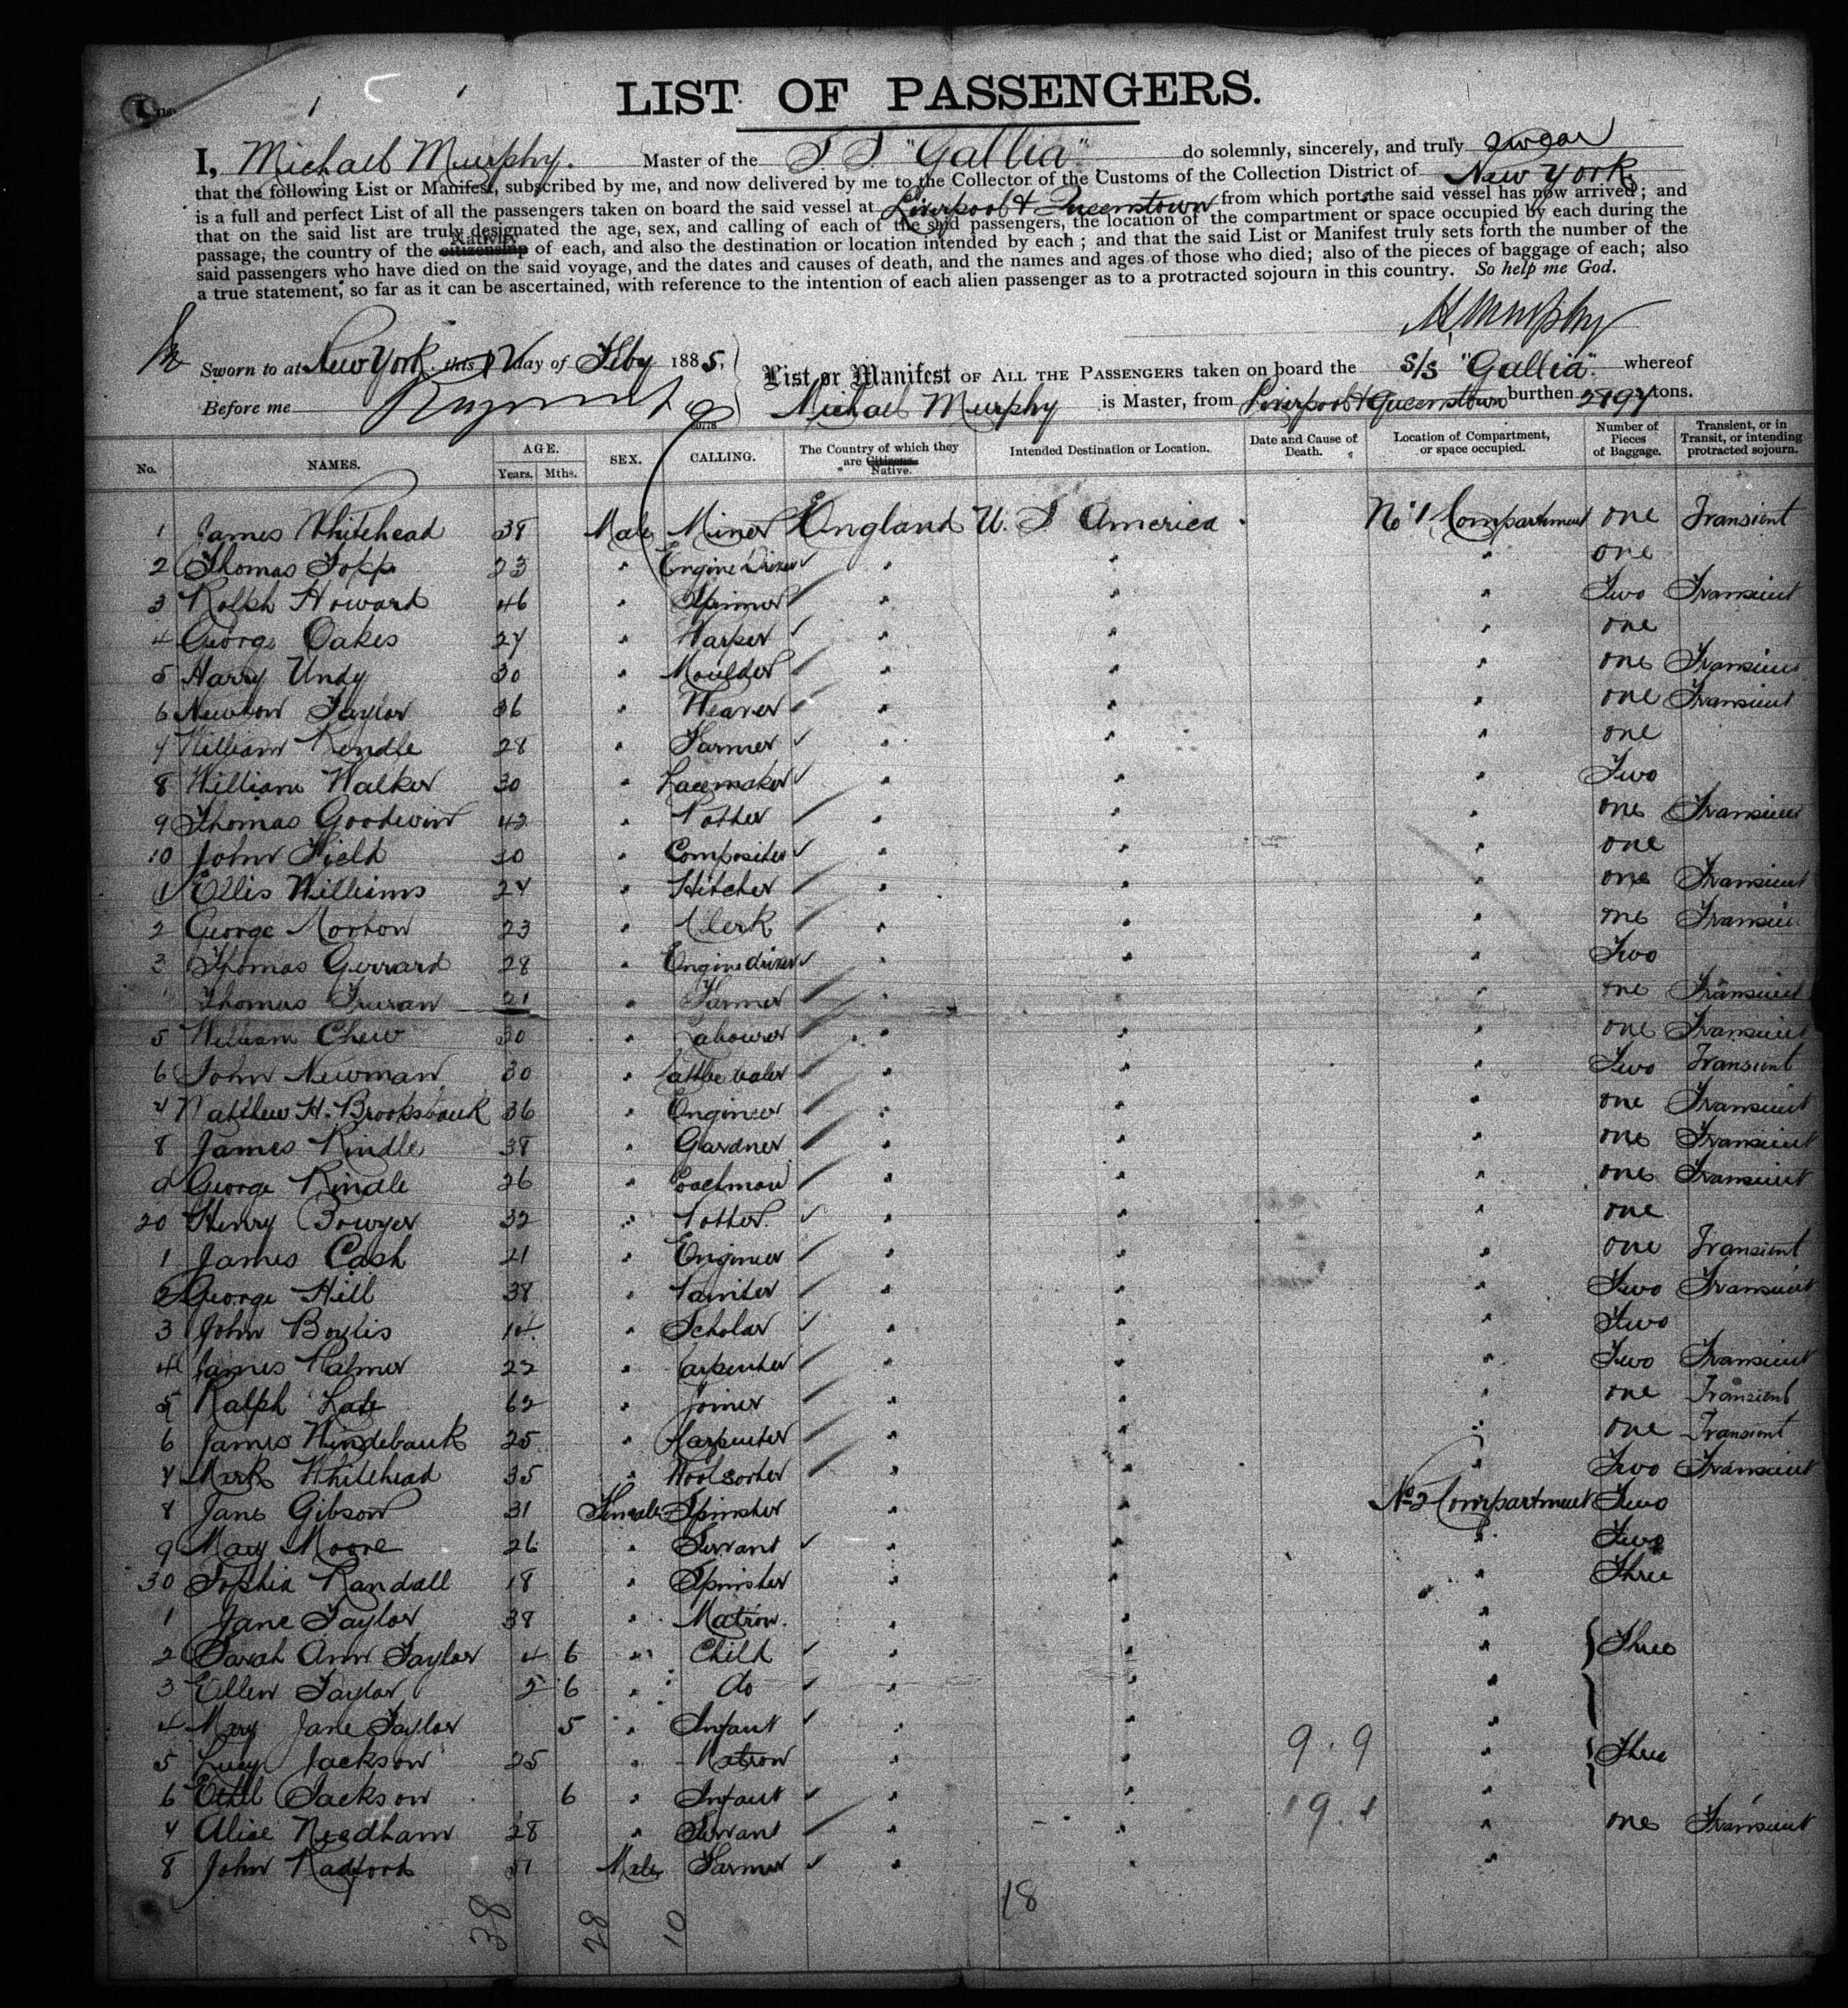 LIST OF PASSENGERS.
I, Michael Murphy. Master of the S S "Gallia" do solemnly, sincerely, and truly swear
that the following List or Manifest, subscribed by me, and now delivered by me to the Collector of the Customs of the Collection District of New York
is a full and perfect List of all the passengers taken on board the said vessel at Liverpool & Queenstown from which ports the said vessel has now arrived; and
that on the said list are truly designated the age, sex, and calling of each of the said passengers, the location of the compartment or space occupied by each during the
Nativity
passage, the country of the citizenship of each, and also the destination or location intended by each; and that the said List or Manifest truly sets forth the number of the
said passengers who have died on the said voyage, and the dates and causes of death, and the names and ages of those who died; also of the pieces of baggage of each; also
a true statement, so far as it can be ascertained, with reference to the intention of each alien passenger as to a protracted sojourn in this country. So help me God.
M. Murphy
Sworn to at New York this 12 day of Feby 1885,
List or Manifest OF ALL THE PASSENGERS taken on board the S/S "Gallia". whereof
Before me
Michael Murphy is Master, from Liverpool & Queenstown burthen tons.
No. NAMES. AGE. Years. Mths. SEX. CALLING. The Country of which they are Citizens. Native. Intended Destination or Location. Date and Cause of Death. Location of Compartment, or space occupied. Number of Pieces of Baggage. Transient, or in Transit, or intending protracted sojourn.
1 James Whitehead 38 Male Miner England U. S America No 1 Compartment one Transient
2 Thomas Topp 23 " Engine Driver " " " one
3 Ralph Howard 46 " Spinner " " " Two Transient
4 George Oakes 27 " Warper " " " one
5 Harry Undy 30 " Moulder " " " one Transient
6 Newton Taylor 36 " Weaver " " " one Transient
7 William Kendle 28 " Farmer " " " one
8 William Walker 30 " Lacemaker " " " Two
9 Thomas Goodwin 42 " Potter " " " one Transient
10 John Field 30 " Compositer " " " one
1 Ellis Williams 27 " " " " one Transient
2 George Morton 23 " Clerk " " " one Transient
3 Thomas Gerrard 28 " Engine driver " " " Two
Thomas Truran 21 " Farmer " " " one Transient
5 William Chew 30 " Labourer " " " one Transient
6 John Newman 30 " " " " Two Transient
7 Matthew H. Brooksbank 36 " Engineer " " " one Transient
8 James Kindle 38 " Gardner " " " one Transient
9 George Kindle 26 " Coachman " " " one Transient
20 Henry Bowyer 32 " Potter " " " one
1 James Cash 21 " Engineer " " " one Transient
2 George Hill 38 " Painter " " " Two Transient
3 John Boylis 14 " Scholar " " " Two
4 James Palmer 22 " Carpenter " " " Two Transient
5 Ralph 62 " Joiner " " " one Transient
6 James Windebank 25 " Carpenter " " " one Transient
7 Mark Whitehead 35 " Woolsorter " " " Two Transient
8 Jane Gibson 31 Female Spinster " " No 2 Compartment Two
9 Mary Moore 26 " Servant " " " Two
30 Sophia Randall 18 " Spinster " " " Three
1 Jane Taylor 38 " Matron " " "
2 Sarah Ann Taylor 4 6 " Child " " " Three
3 Ellen Taylor 2 6 " do " " "
4 Mary Jane Taylor 5 " Infant " " "
5 Lucy Jackson 25 " Matron " " 9.9 " Three
6 Ethel Jackson 6 " Infant " " "
7 Alice Needham 28 " Servant " " " one Transient
8 John Radford 51 Male Farmer " " "
38 28 10 18